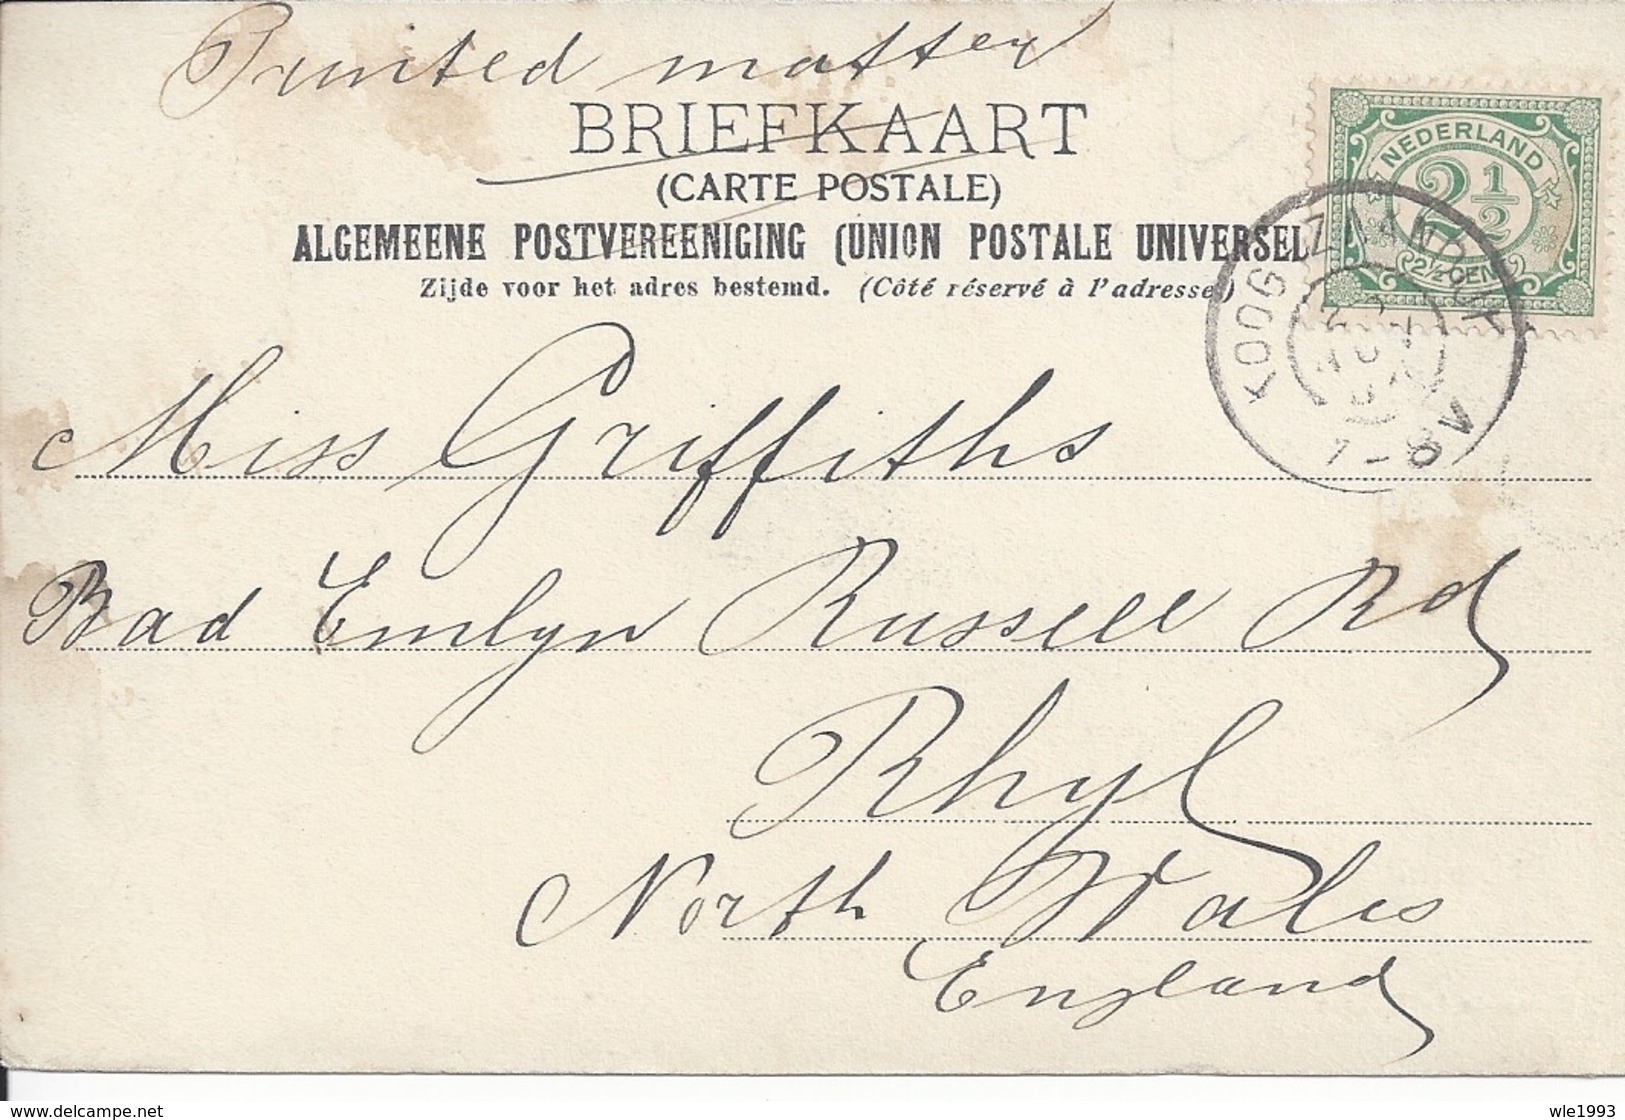 Printed matter
BRIEFKAART
(CARTE POSTALE)
ALGEMEENE POSTVEREENIGING (UNION POSTALE UNIVERSEL
Zijde voor het adres bestemd. (Côté réservé à l'adresse)
NEDERLAND
2 1/2
2½ CENT
KOOG-ZAANDIJK
7-8V
Miss Griffiths
Bad Emlyn Russell Rd
Rhyl
North Wales
England
delcampe.net
wle1993